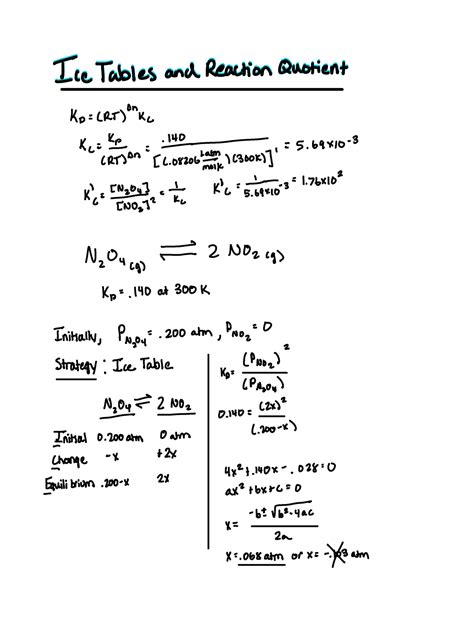 Ice Tables and Reaction Quotient
Kp = (RT)^Δn Kc
Kc = Kp/(RT)^Δn = .140/[(.08206 Latm/molK)(300K)]^1 = 5.69x10^-3
K'c = [N2O4]/[NO2]^2 = 1/Kc K'c = 1/5.69x10^-3 = 1.76x10^2
N2O4(g) ⇌ 2 NO2(g)
Kp = .140 at 300 K
Initially, P_N2O4 = .200 atm, P_NO2 = 0
Strategy: Ice Table
N2O4 ⇌ 2 NO2
Initial 0.200 atm 0 atm
Change -x +2x
Equilibrium .200-x 2x
Kp = (P_NO2)^2/(P_N2O4)
0.140 = (2x)^2/(.200-x)
4x^2 + .140x - .028 = 0
ax^2 + bx + c = 0
x = -b ± √b^2-4ac / 2a
x = .068 atm or x = -.103 atm